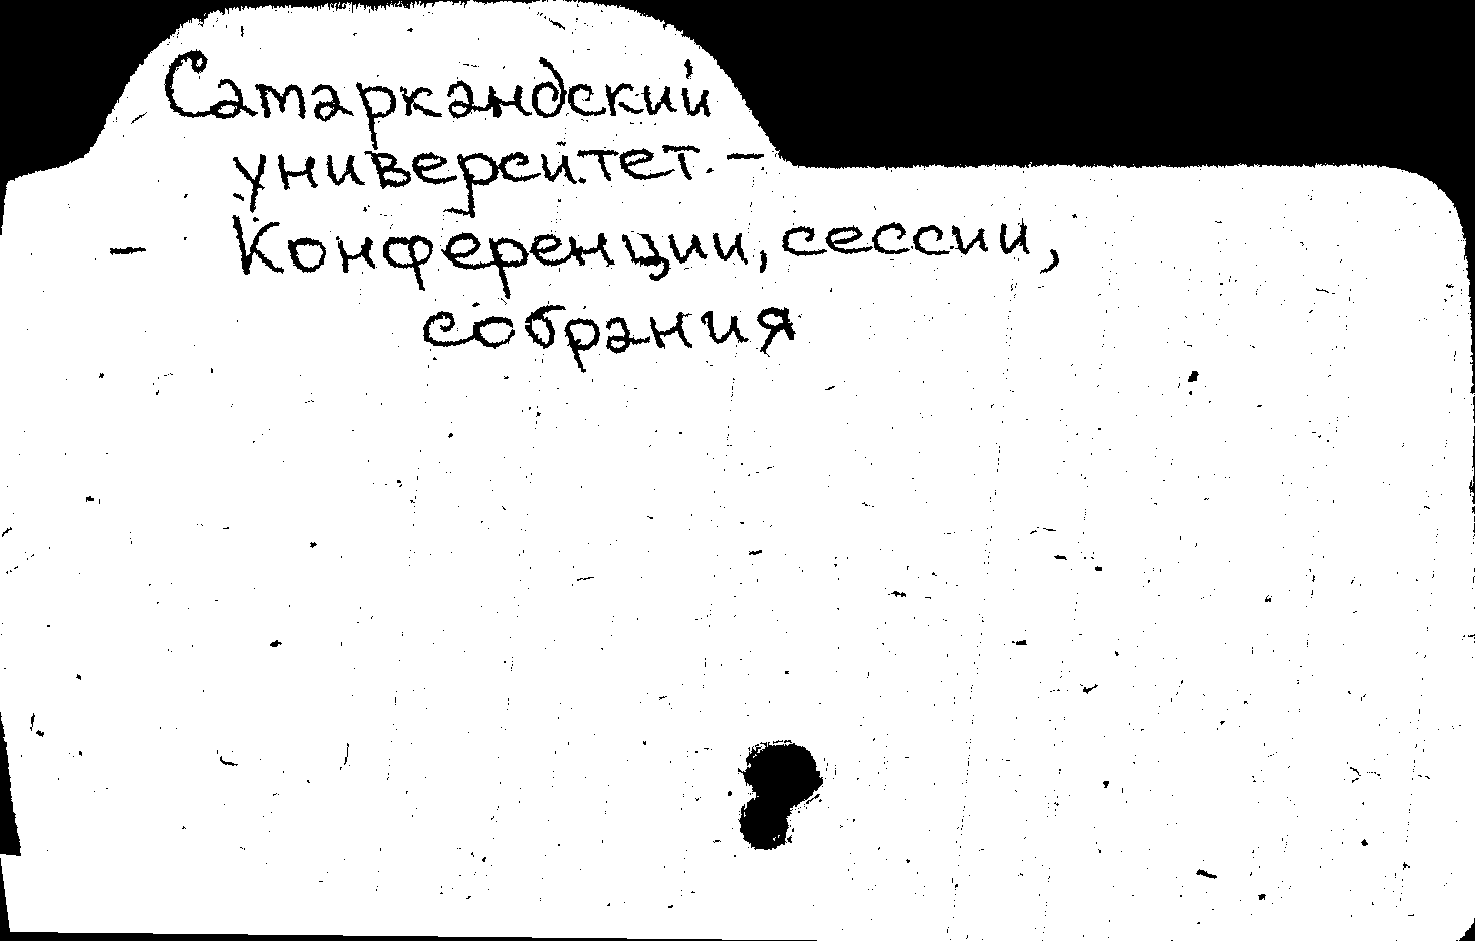 Самаркандский
университет. –
– Конференции, сессии,
собрания